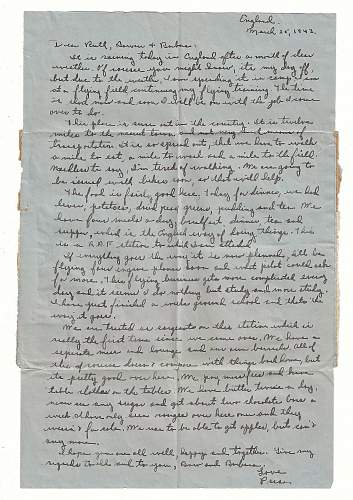 England,
March 25, 1942.
Dear Ruth, Dawn & Barbara:
It is raining today in England after a month of clear
weather. Of course you might know, it's my day off,
but due to the weather I am spending it in camp. I am
at a flying field continuing my flying training. The time
is short now and soon I will be on with the job I came
over to do.
This place is sure out in the country. It is twelve
miles to the nearest town, and not any means of
transportation. It is so spread out, that we have to walk
a mile to eat, a mile to work and a mile to the field.
Needless to say, I'm tired of walking. We are going to
be issued with bikes soon, so that will help.
The food is fairly good here. Today for dinner, we had
liver, potatoes, dried peas, greens, pudding and tea. We
have four meals a day, breakfast, dinner, tea and
supper, which is the English way of doing things. This
is a R.A.F. station to which I am attached.
If everything goes the way it is now planned, I'll be
flying four engine planes soon and what pilot could ask
for more. This flying business gets more complicated every
day and it seems I do nothing but study and more study.
I have just finished weeks ground school and that's the
way it goes.
We are treated as sergeants on this station which is
really the first time since we came over. We have a
separate mess and lounge and our own barracks. All of
this of course doesn't compare with things back home, but
it's pretty good over here. We pay mess fees and have
table clothes on the tables. We have butter twice a day,
now and sugar and get about two chocolate bars a
week. I have only seen oranges over here once and they
weren't for sale. We use to be able to get apples, but can't
any more.
I hope you are all well, happy and together. Give my
regards to all and to you, Dawn and Barbara.
Love